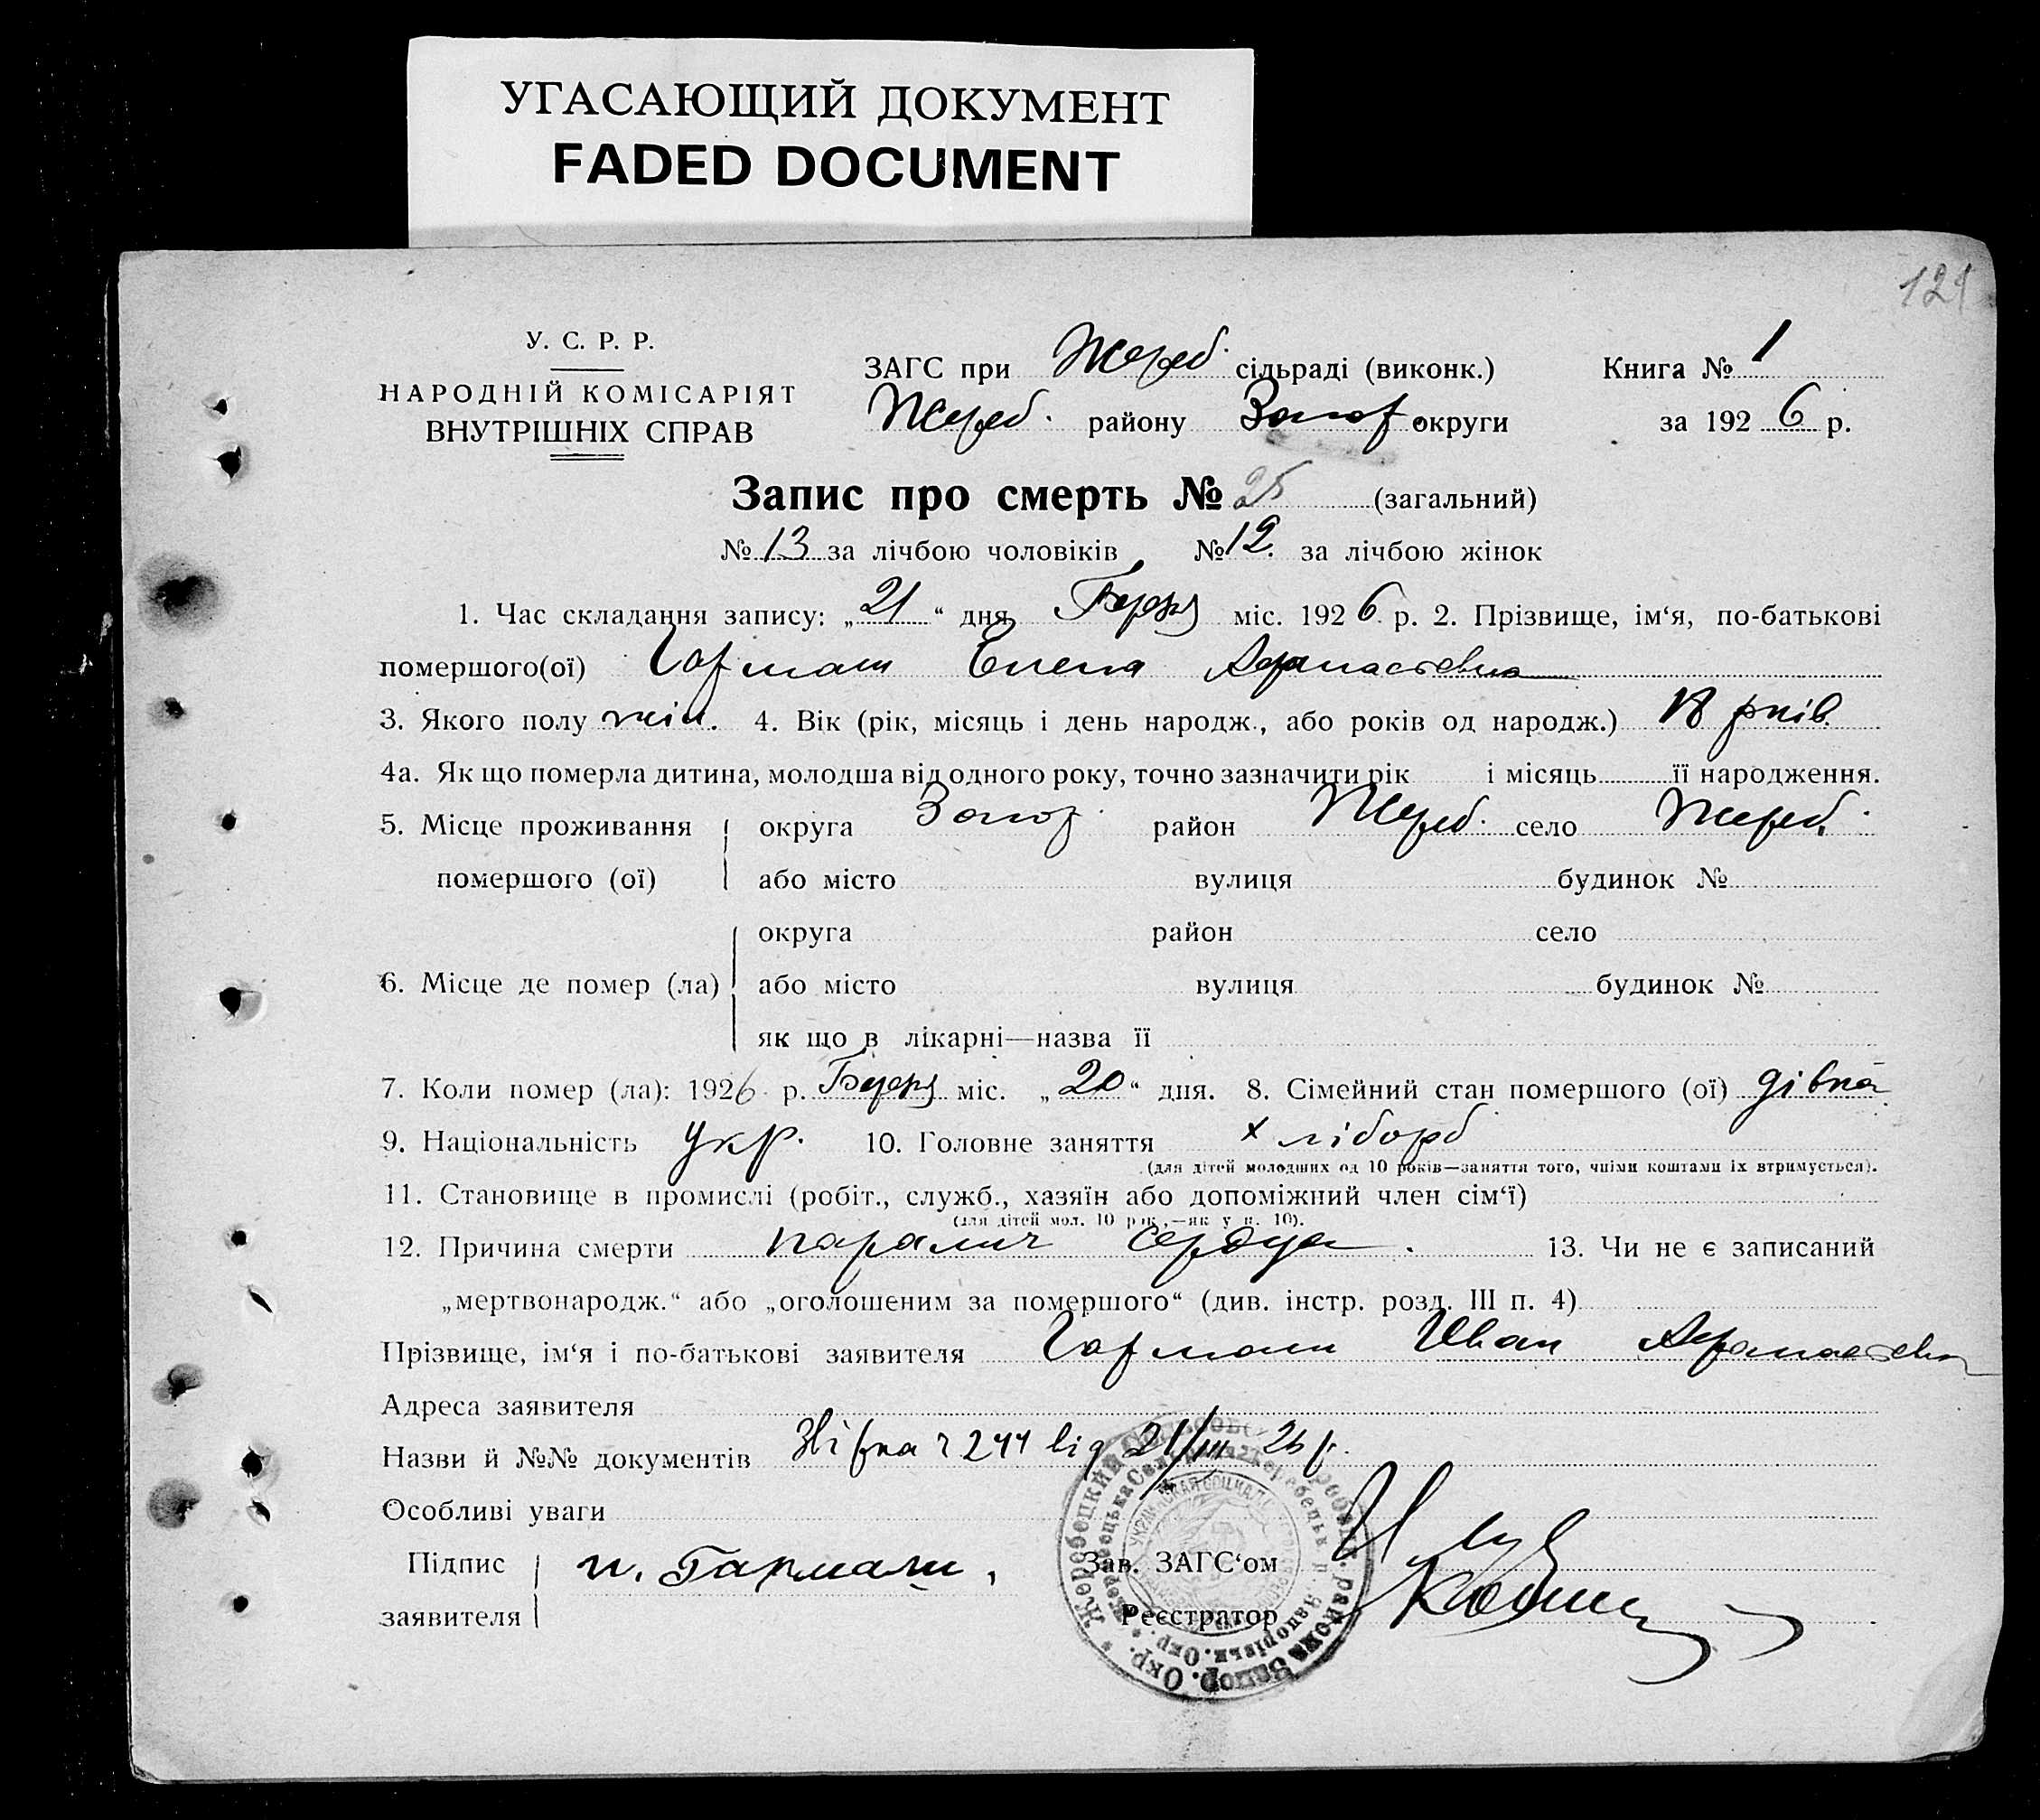 УГАСАЮЩИЙ ДОКУМЕНТ
FADED DOCUMENT
121
У. С. Р. Р.
НАРОДНІЙ КОМІСАРІЯТ
ВНУТРІШНІХ СПРАВ
ЗАГС при Жереб. сільраді (виконк.)
Жереб. району Запор. округи
Книга № 1
за 1926 р.
Запис про смерть № 25 (загальний)
№ 13 за лічбою чоловіків № 12. за лічбою жінок
1. Час складання запису: „21“ дня Березня міс. 1926 р. 2. Прізвище, ім‘я, по-батькові
помершого(ої) Гармаш Елена Афанасьевна
3. Якого полу жін. 4. Вік (рік, місяць і день народж., або років од народж.) 18 років
4а. Як що померла дитина, молодша від одного року, точно зазначити рік і місяць її народження.
5. Місце проживання округа Запор. район Жереб. село Жереб.
помершого (ої) або місто вулиця будинок №
округа район село
6. Місце де помер (ла) або місто вулиця будинок №
як що в лікарні—назва її
7. Коли помер (ла): 1926 р. Березня міс. „20“ дня. 8. Сімейний стан помершого (ої) дівка
9. Національність Укр. 10. Головне заняття хлібороб
(для дітей молодших од 10 років—заняття того, чиїми коштами їх втримується).
11. Становище в промислі (робіт., служб., хазяїн або допоміжний член сім‘ї)
(для дітей мол. 10 рок.,—як у п. 10).
12. Причина смерти паралич сердца. 13. Чи не є записаний
„мертвонародж.“ або „оголошеним за помершого“ (див. інстр. розд. III п. 4)
Прізвище, ім‘я і по-батькові заявителя Гармаш Иван Афанасьевич
Адреса заявителя
Назви й №№ документів 244 від 21/III 26 р.
Особливі уваги
Підпис
заявителя
и. Гармаш,
Зав. ЗАГС‘ом
Реєстратор